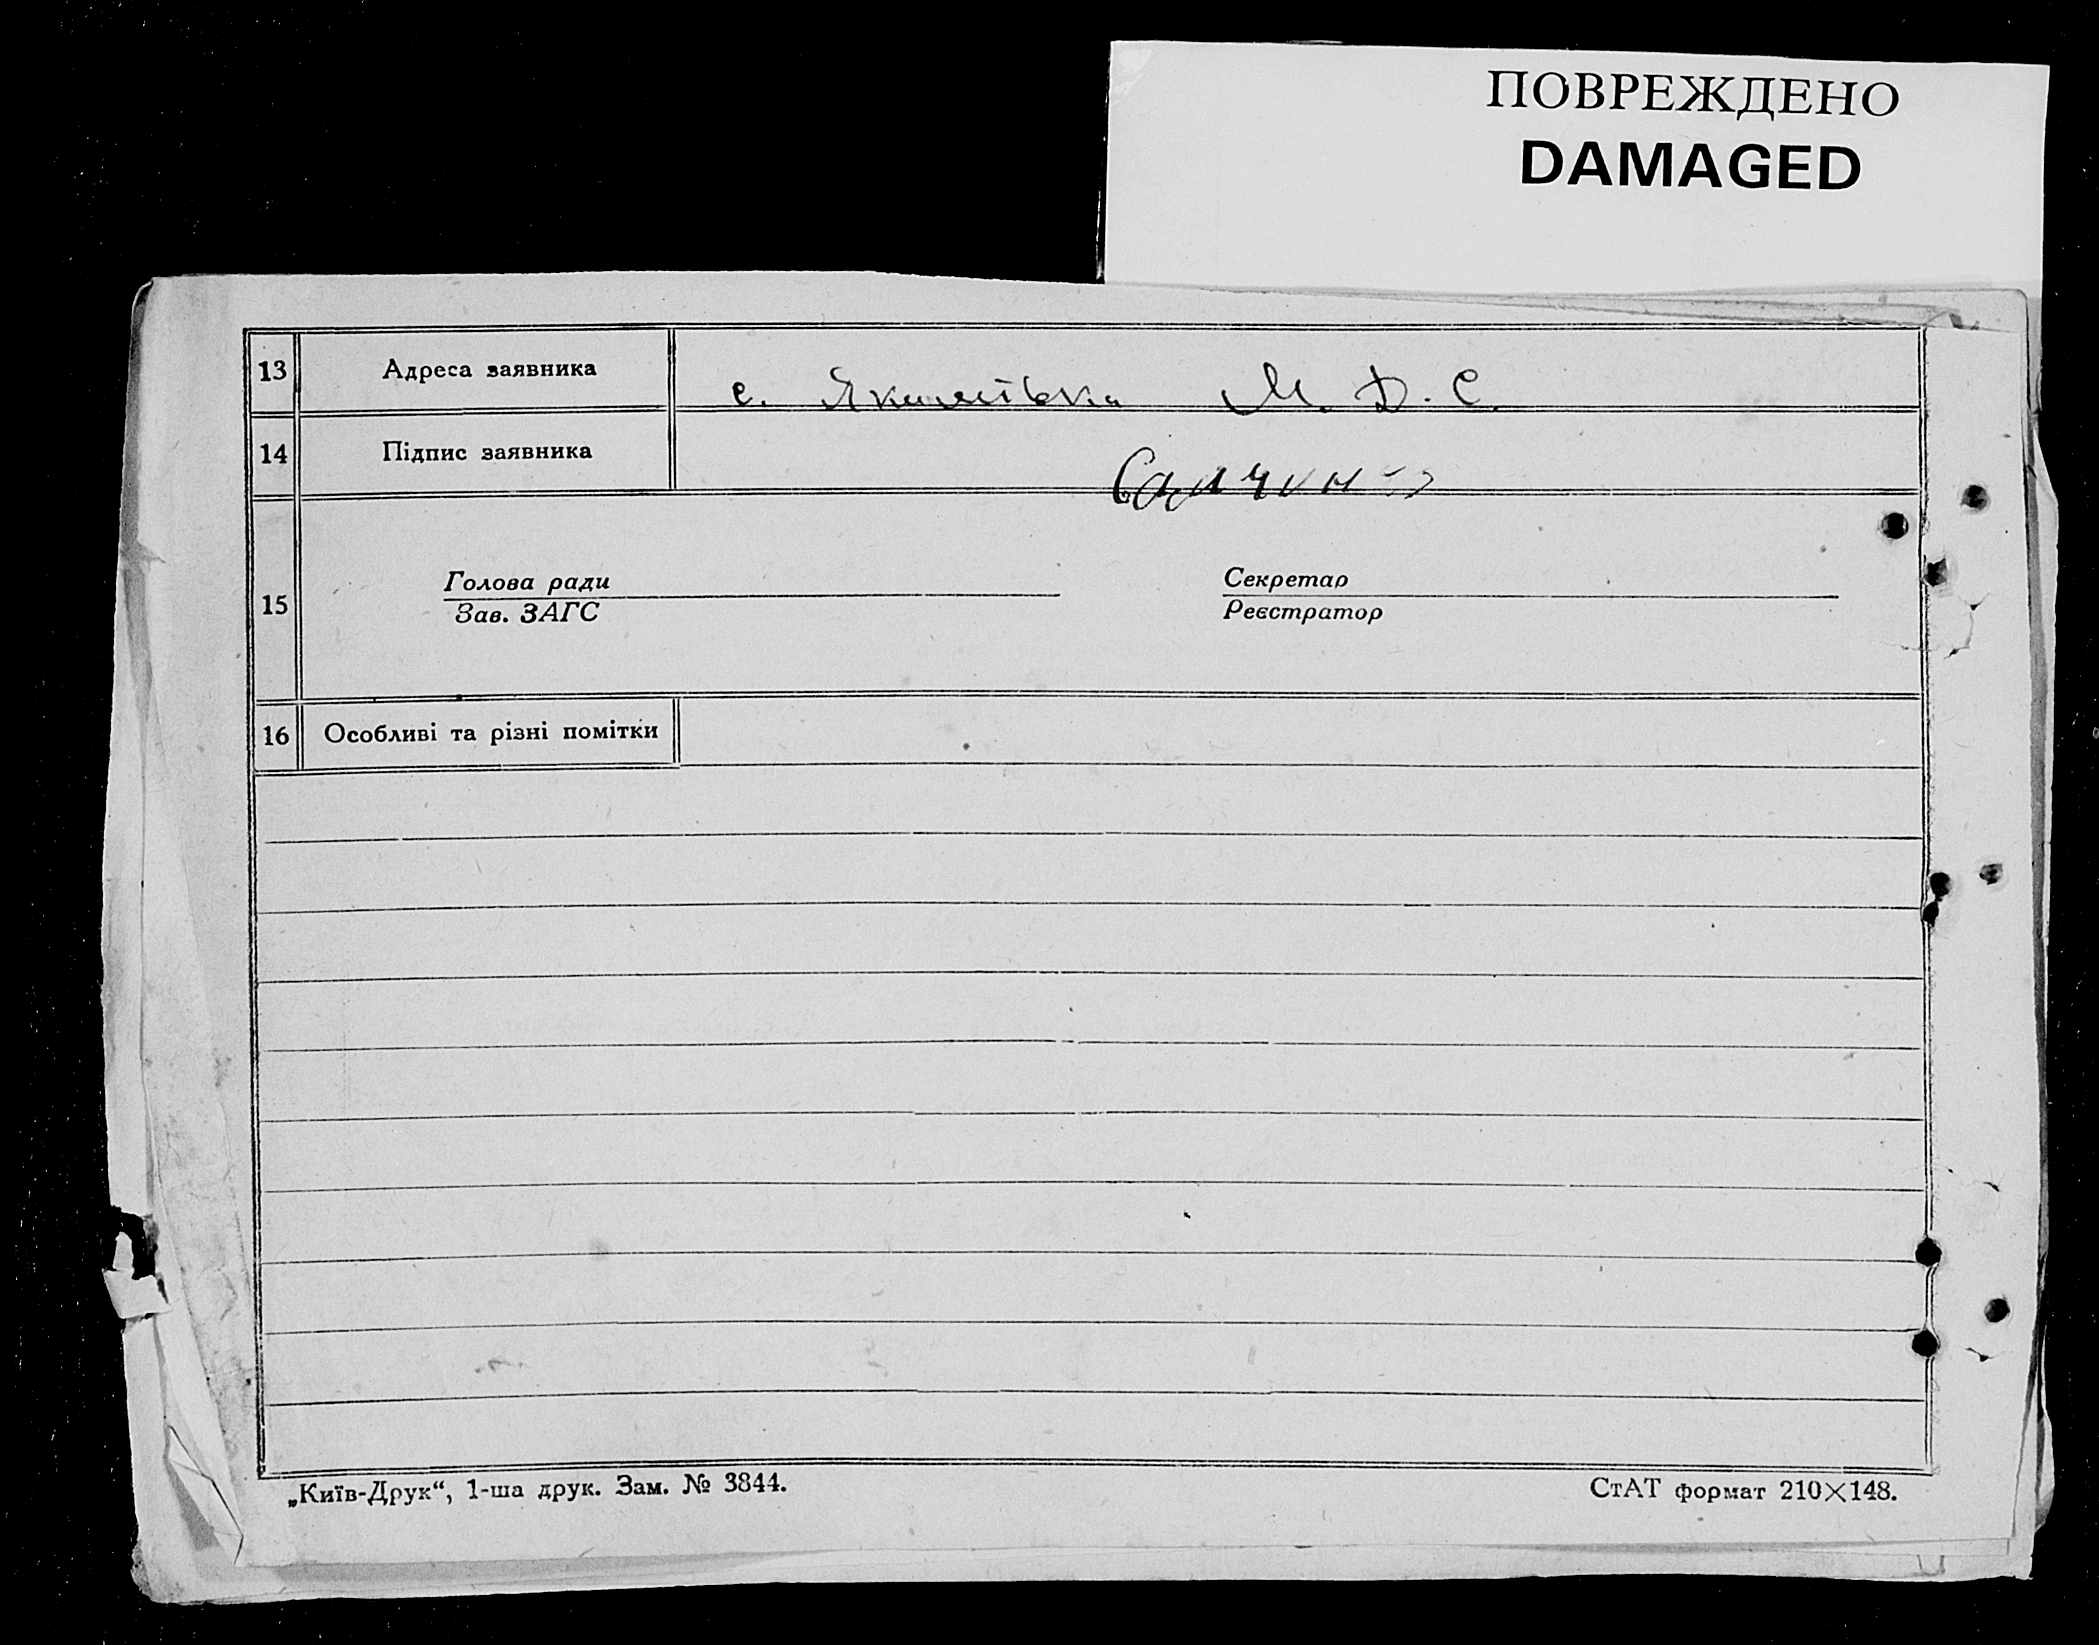 ПОВРЕЖДЕНО
DAMAGED
13 Адреса заявника с. Якимівка М. Д. С.
14 Підпис заявника
15 Голова ради Секретар
Зав. ЗАГС Реєстратор
16 Особливі та різні помітки
„Київ-Друк“, 1-ша друк. Зам. № 3844. СтАТ формат 210×148.